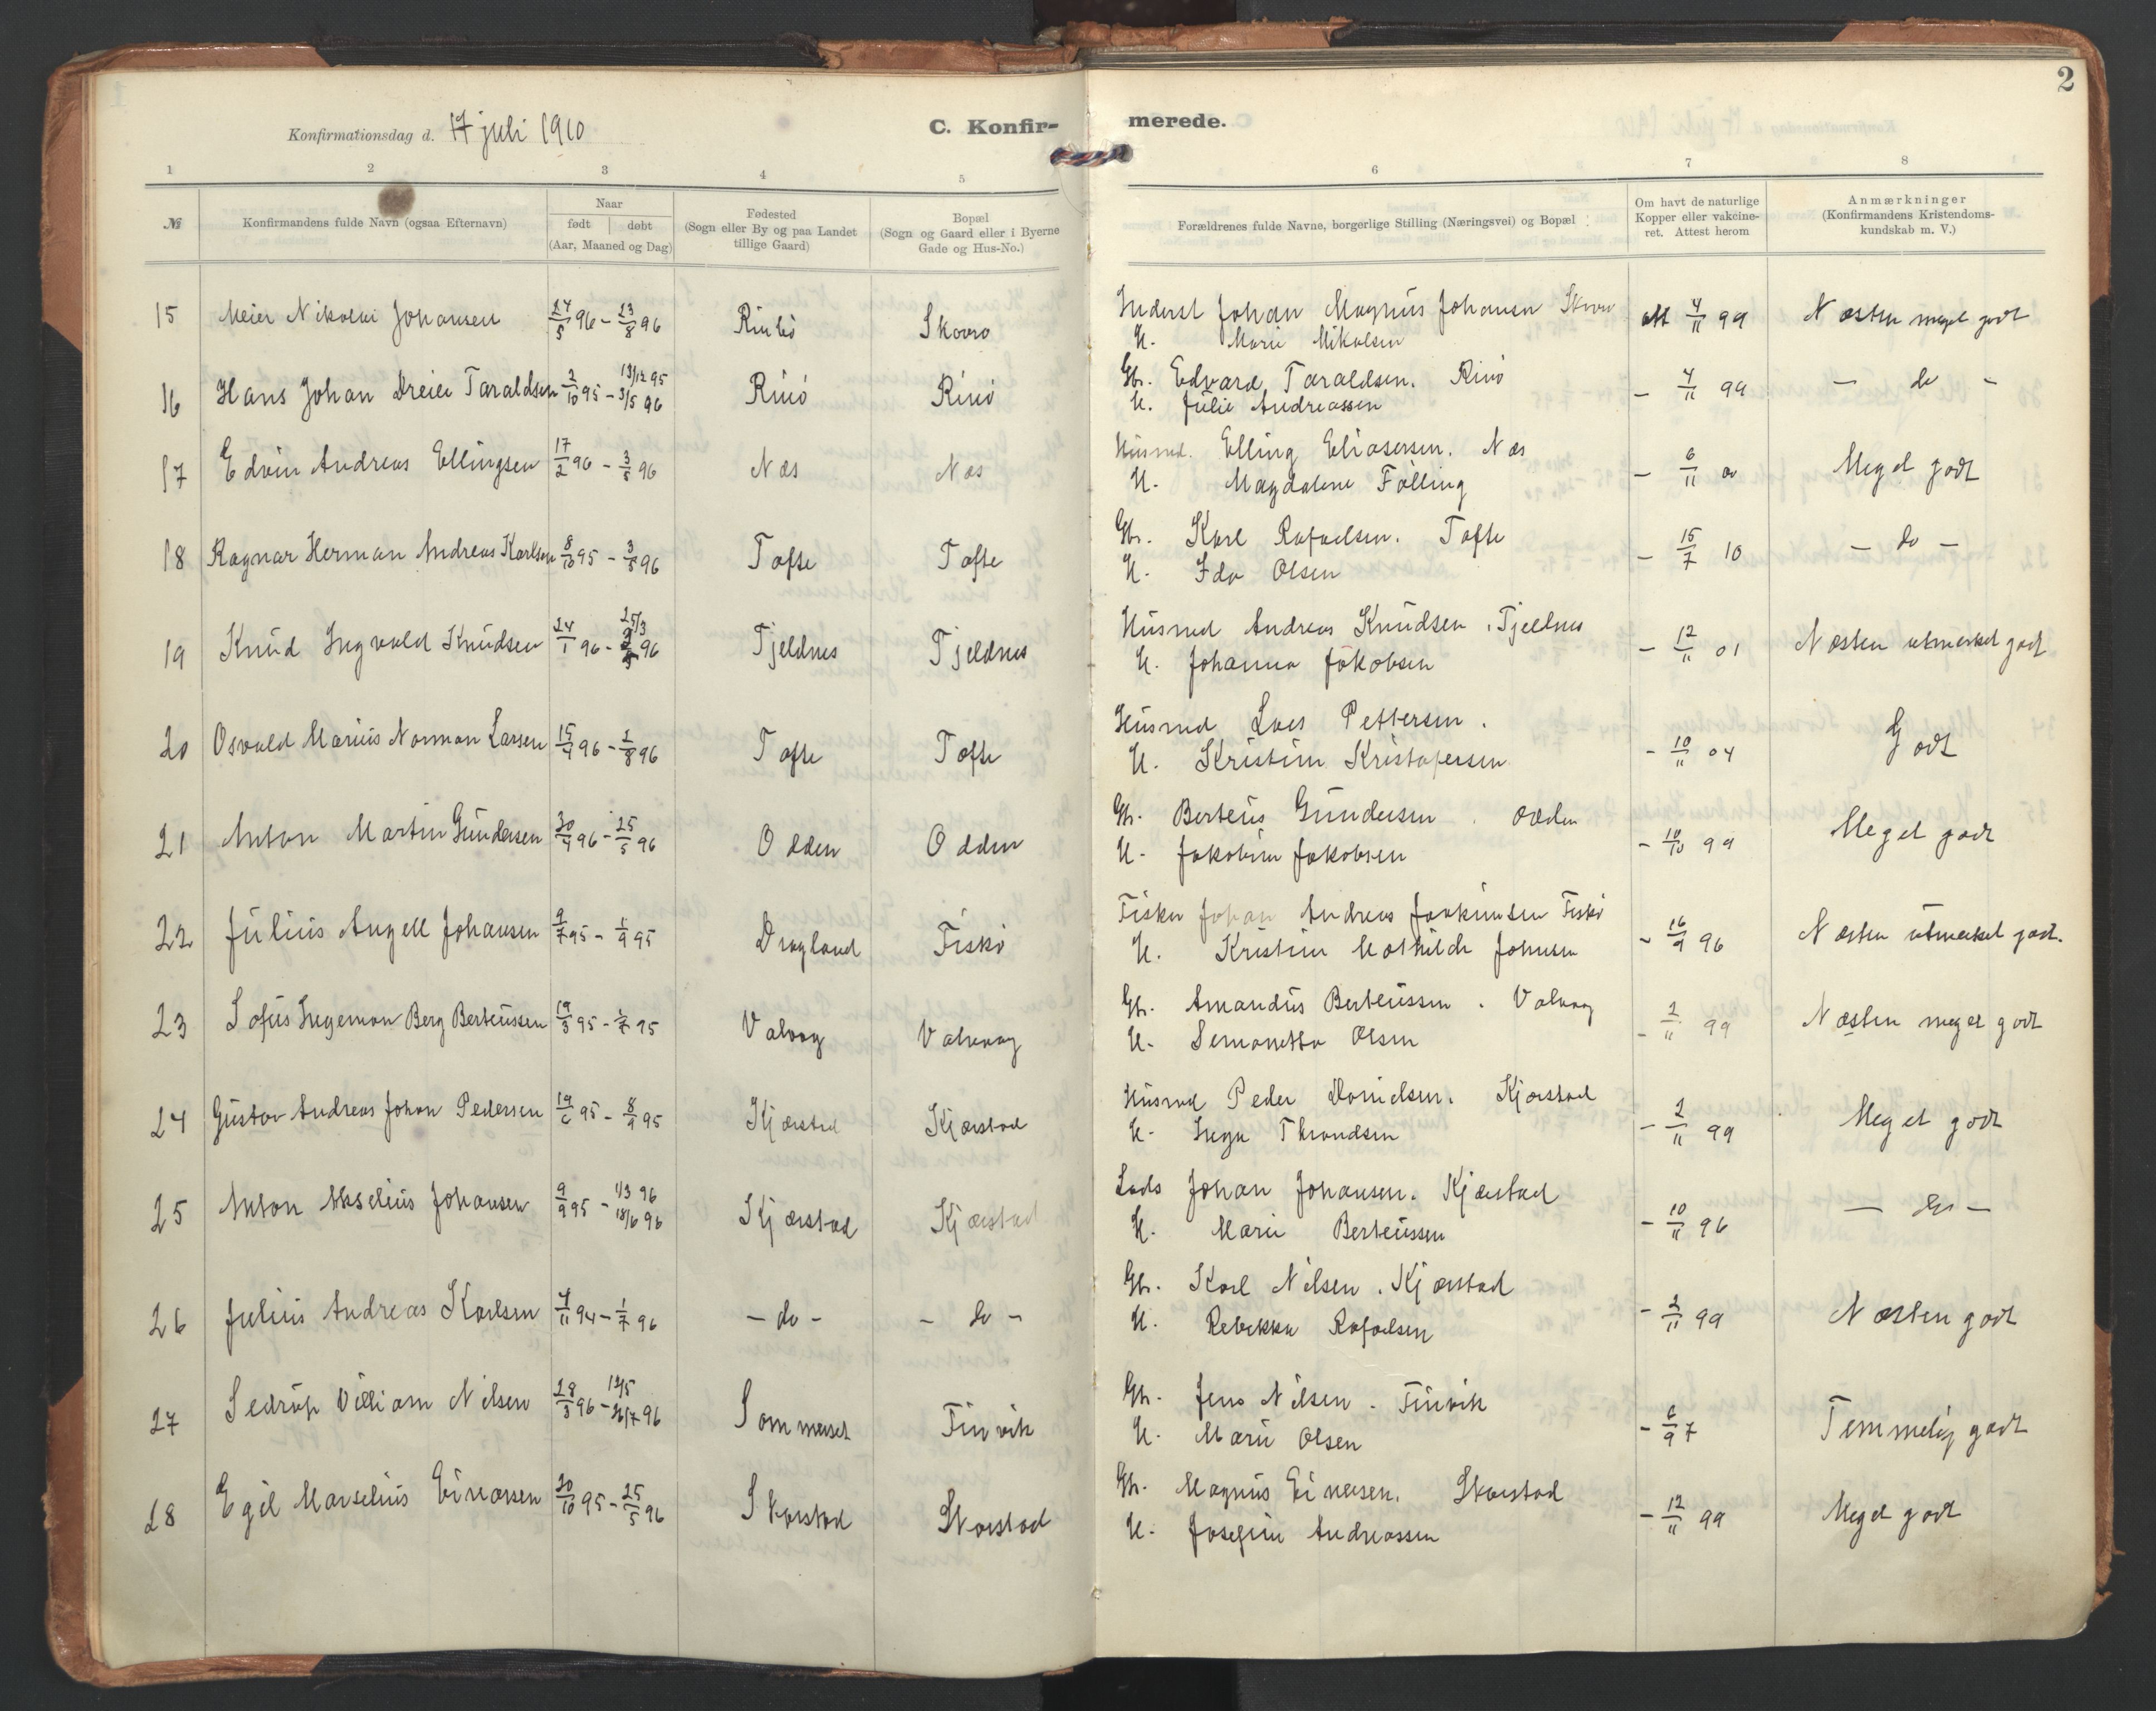 2
Konfirmationsdag d. 17 juli 1910
C. Konfir-
merede.
1 2 3 4 5 6 7 8
№
Konfirmandens fulde Navn (ogsaa Efternavn)
Naar
født døbt
(Aar, Maaned og Dag)
Fødested
(Sogn eller By og paa Landet
tillige Gaard)
Bopæl
(Sogn og Gaard eller i Byerne
Gade og Hus-No.)
Forældrenes fulde Navne, borgerlige Stilling (Næringsvei) og Bopæl
Om havt de naturlige
Kopper eller vakcine-
ret. Attest herom
Anmærkninger
(Konfirmandens Kristendoms-
kundskab m. V.)
15 Meier Nikolai Johansen 24/5 96 - 23/8 96 Skovro Inderst Johan Magnus Johansen Skovro att 4/11 99 Næsten meget godt
H. Marie Mikalsen
16 Hans Johan Dreier Taraldsen 2/10 95 - 13/12 95 3/5 96 Rinø Rinø Gbr. Edvard Taraldsen. Rinø - 4/11 99 - do -
H. Julie Andreassen
17 Edvin Andreas Ellingsen 17/2 96 - 3/5 96 Næs Næs Husmd. Elling Eliasersen. Næs - 6/11 00 Meget godt
H. Magdalene Følling
18 Ragnar Herman Andreas Karlsen 8/10 95 - 3/5 96 Tofte Tofte Gbr. Karl Rafaelsen. Tofte - 15/7 10 - do -
H. Ida Olsen
19 Knud Ingvald Knudsen 24/1 96 - 25/3 96 Tjeldnes Tjeldnes Husmd Andreas Knudsen. Tjeldnes - 12/11 01 Næsten utmerket godt
H. Johanna Jakobsen
20 Osvald Marius Norman Larsen 15/4 96 - 2/8 96 Tofte Tofte Husmd Lars Pettersen. - 10/11 04 Godt
H. Kristine Kristofersen
21 Anton Martin Gundersen 30/4 96 - 25/5 96 Odden Odden Gbr. Berteus Gundersen. Odden - 10/10 99 Meget godt
H. Jakobine Jakobsen
22 Julius Angell Johansen 9/7 95 - 1/9 95 Dragland Fiskø Fisker Johan Andreas Joakimsen Fiskø - 16/9 96 Næsten utmerket godt.
H. Kristine Mathilde Johnsen
23 Sofus Ingeman Berg Berteussen 19/3 95 - 1/7 95 Valvaag Valvaag Gbr. Amandus Berteussen. Valvaag - 2/11 99 Næsten meget godt
H. Semonetta Olsen
24 Gustav Andreas Johan Pedersen 19/6 95 - 8/9 95 Kjørstad Kjørstad Husmd Peder Danielsen. Kjørstad - 2/11 99 Meget godt
H. Inga Throndsen
25 Anton Akselius Johansen 9/9 95 - 1/3 96 18/6 96 Kjørstad Kjørstad Lods Johan Johansen. Kjørstad - 10/11 96 - do -
H. Marie Berteussen
26 Julius Andreas Karlsen 4/11 94 - 1/7 96 - do - - do - Gbr. Karl Nilsen. Kjørstad - 2/11 99 Næsten godt
H. Rebekka Rafaelsen
27 Sedrup Villiam Nilsen 28/3 96 - 12/5 26/7 96 Sommerset Finvik Gbr. Jens Nilsen. Finvik - 6/9 7 Temmelig godt
H. Marie Olsen
28 Egil Marselius Einarsen 30/10 95 - 25/5 96 Skorstad Skorstad Gbr. Magnus Einersen. Skorstad - 12/11 99 Meget godt
H. Josefine Andreassen